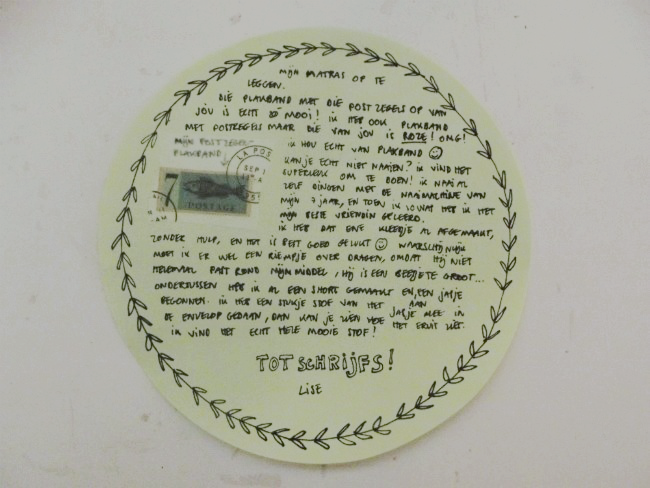 MIJN MATRAS OP TE
LEGGEN.
DIE PLAKBAND MET DIE POSTZEGELS OP VAN
JOU IS ECHT ZÓ MOOI! IK HEB OOK PLAKBAND
MET POSTZEGELS MAAR DIE VAN JOU IS ROZE! OMG!
IK HOU ECHT VAN PLAKBAND ☺
MIJN POSTZEGEL-
PLAKBAND
LA POS
SEP 1
7
POSTAGE
KAN JE ECHT NIET NAAIEN? IK VIND HET
SUPERLEUK OM TE DOEN! IK NAAI AL
ZELF DINGEN MET DE NAAIMACHINE VAN
MIJN 7 JAAR, EN TOEN IK 10 WAS HEB IK HET
MIJN BESTE VRIENDIN GELEERD.
IK HEB DAT ENE KLEEDJE AL AFGEMAAKT,
ZONDER HULP, EN HET IS BEST GOED GELUKT ☺ WAARSCHIJNLIJK
MOET IK ER WEL EEN RIEMPJE OVER DRAGEN, OMDAT HIJ NIET
HELEMAAL PAST ROND MIJN MIDDEL, HIJ IS EEN BEETJE TE GROOT...
ONDERTUSSEN HEB IK AL EEN SHORT GEMAAKT EN EEN JASJE
BEGONNEN. IK HEB EEN STUKJE STOF VAN HET AAN
DE ENVELOP GEDAAN, DAN KAN JE ZIEN HOE JASJE
IK VIND HET ECHT HELE MOOIE STOF! HET ERUIT ZIET.
TOT SCHRIJFS!
LISE